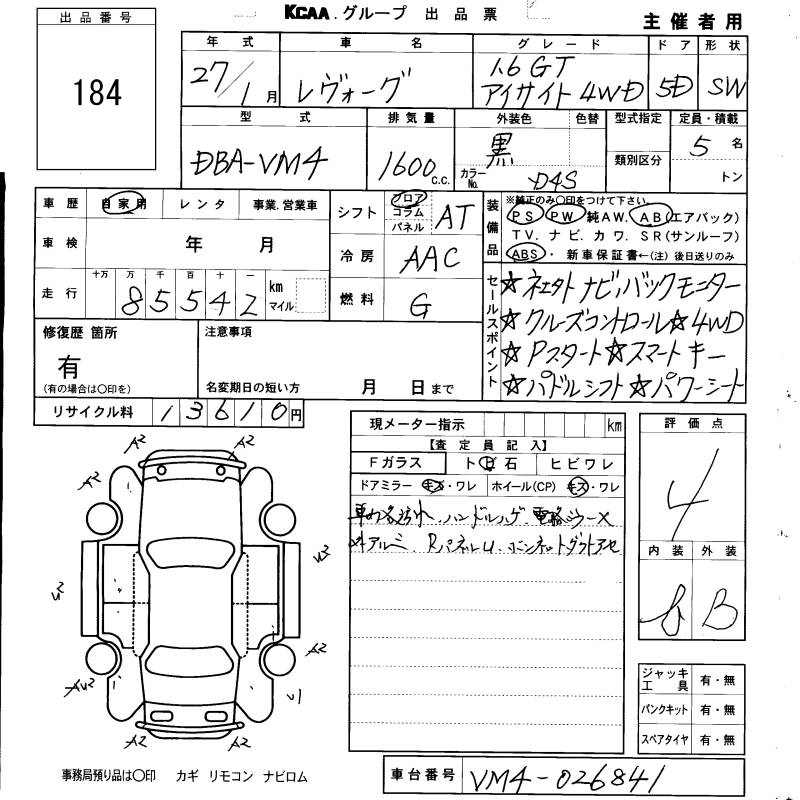 KCAA.グループ 出品票
主催者用
出品番号
184
年式 車名 グレード ドア 形状
27/1月 レヴォーグ 1.6GT アイサイト 4WD 5D SW
型式 排気量 外装色 色替 型式指定 定員・積載
DBA-VM4 1600c.c. 黒 カラーNo. D4S 類別区分 5名 トン
車歴 自家用 レンタ 事業.営業車
車検 年 月
走行 十万 万 千 百 十 一 km マイル
85542
シフト フロア コラム パネル AT
冷房 AAC
燃料 G
装備品
※純正のみ〇印をつけて下さい。
PS PW 純AW. AB(エアバック)
TV. ナビ. カワ. SR(サンルーフ)
ABS・新車保証書←(注)後日送りのみ
セールスポイント
☆クルーズコントロール☆4WD
☆Pスタート☆スマートキー
☆パドルシフト☆パワーシート
修復歴 箇所
有
(有の場合は〇印を)
注意事項
名変期日の短い方 月 日まで
リサイクル料 13610円
現メーター指示 km
【査定員記入】
Fガラス トビ石 ヒビワレ
ドアミラー キズ・ワレ ホイール(CP) キズ・ワレ
評価点
4
内装 外装
B
A2 A2
A2 A2
V2 V2
A2
V1
A2 A2
ジャッキ工具 有・無
パンクキット 有・無
スペアタイヤ 有・無
事務局預り品は〇印 カギ リモコン ナビロム
車台番号 VM4-026841